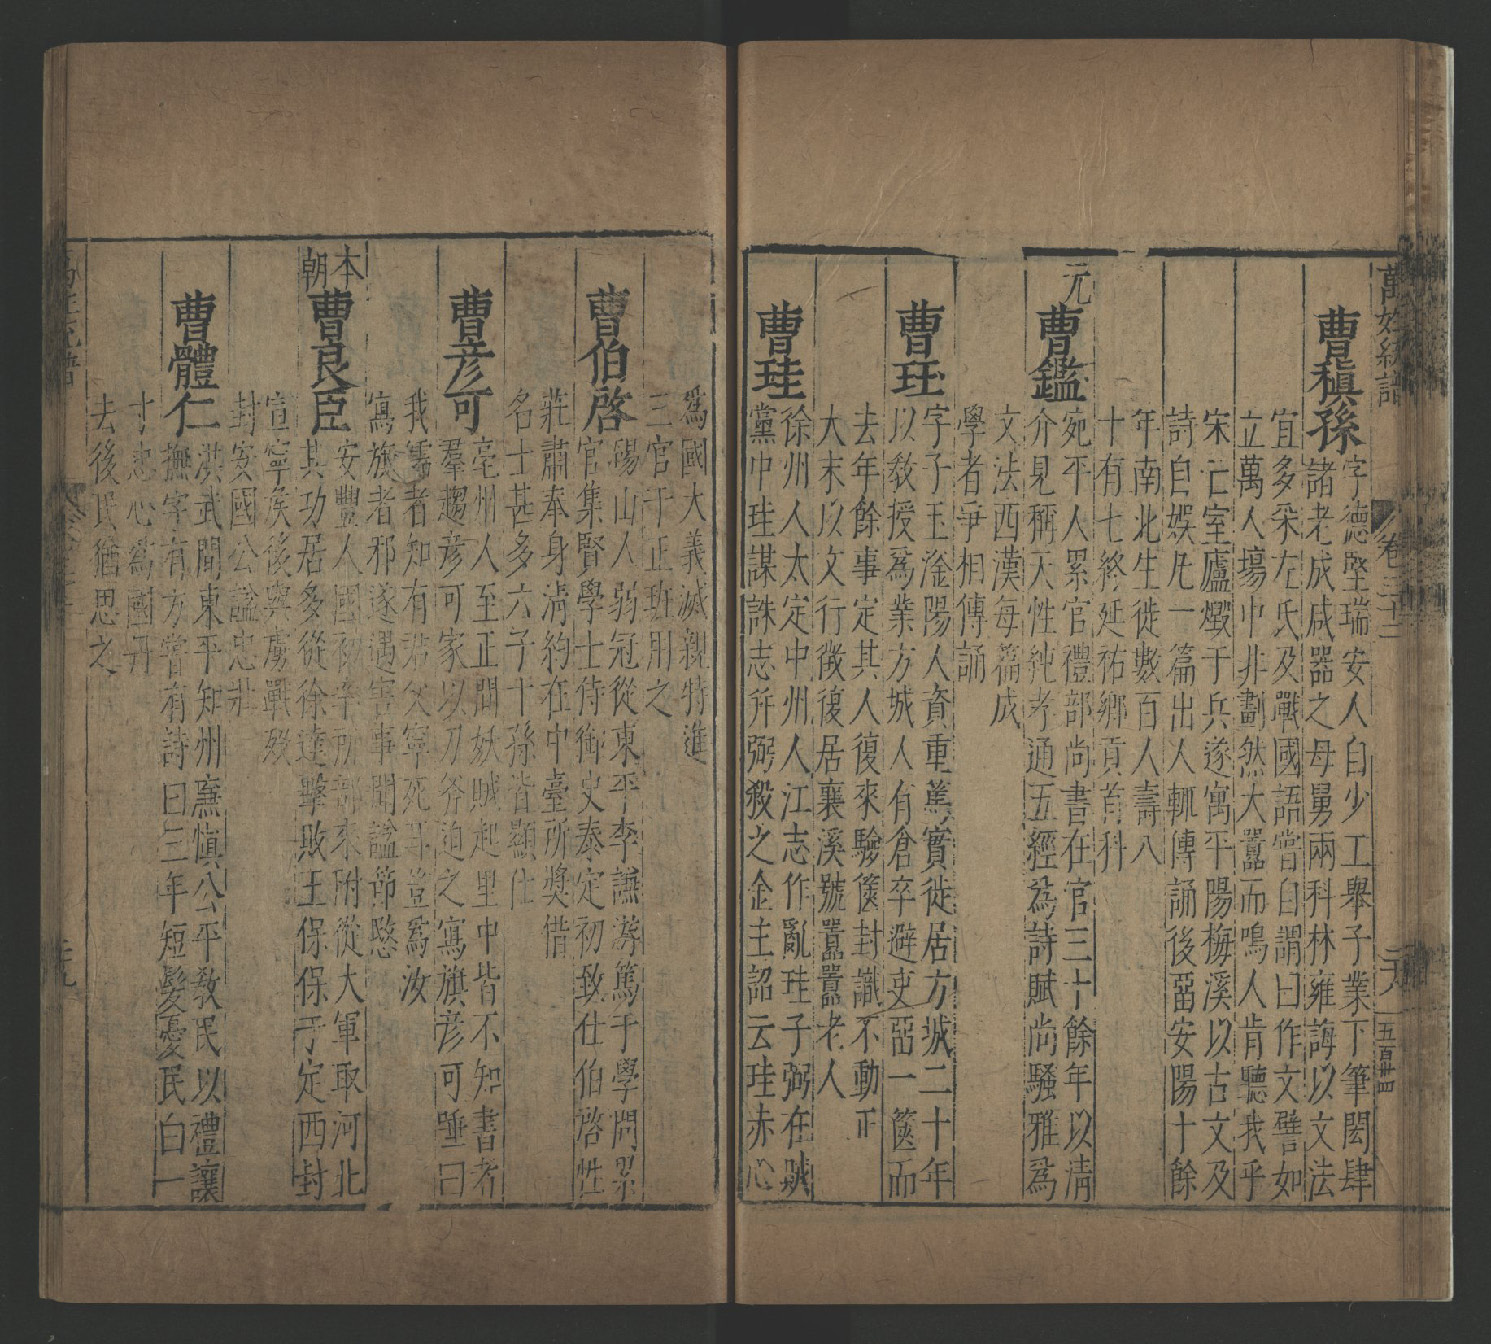 萬姓統譜
卷三十二
五百卅四
曹稹孫
字德堅瑞安人自少工舉子業下筆閎肆
諸老成咸器之母舅兩科林雍誨以文法
宜多采左氏及戰國語嘗自謂曰作文譬如
立萬人場中非劃然大囂而鳴人肯聽我乎
宋亡室廬燬于兵遂寓平陽梅溪以古文及
詩自娛凡一篇出人輒傳誦後畱安陽十餘
年南北生徒數百人壽八
十有七終延祐鄉貢首科
元
曹鑑
宛平人累官禮部尚書在官三十餘年以清
介見稱天性純孝通五經為詩賦尚騷雅為
文法西漢每篇成
學者爭相傳誦
曹玨
字子玉滏陽人資重篤實徙居方城二十年
以敎授爲業方城人有倉卒避吏畱一篋而
去年餘事定其人復來驗篋封識不動正
大末以文行徵復居襄溪號囂囂老人
曹珪
徐州人太定中州人江志作亂珪子弼在賊
黨中珪謀誅志幷弼殺之金主詔云珪赤心
爲國大義滅親特進
三官于正班用之
曹伯啓
碭山人弱冠從東平李謙游篤于學問累
官集賢學士侍御史泰定初致仕伯啓性
莊肅奉身清約在中臺所獎借
名士甚多六子十孫皆顯仕
曹彥可
亳州人至正間妖賊起里中皆不知書者
羣趨彥可家以刀斧迫之寫旗彥可唾曰
我儒者知有君父寧死耳豈爲汝
寫旗者邪遂遇害事聞諡節愍
本朝
曹良臣
安豐人國初率所部來附從大軍取河北
其功居多從徐達擊敗王保保于定西封
宣寧侯後與虜戰歿
封安國公諡忠壯
曹體仁
洪武間東平知州廉慎公平敎民以禮讓
撫字有方嘗有詩曰三年短髮憂民白一
寸忠心爲國丹
去後民猶思之